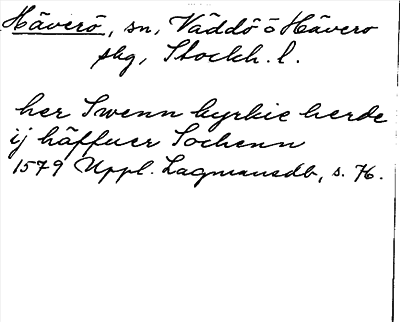 Häverö, sn, Väddö o Hävero
skg, Stockh. l.
her Swenn kyrkie herde
ij häffuer Sochenn
1579 Uppl. Lagmansdb, s. 76.